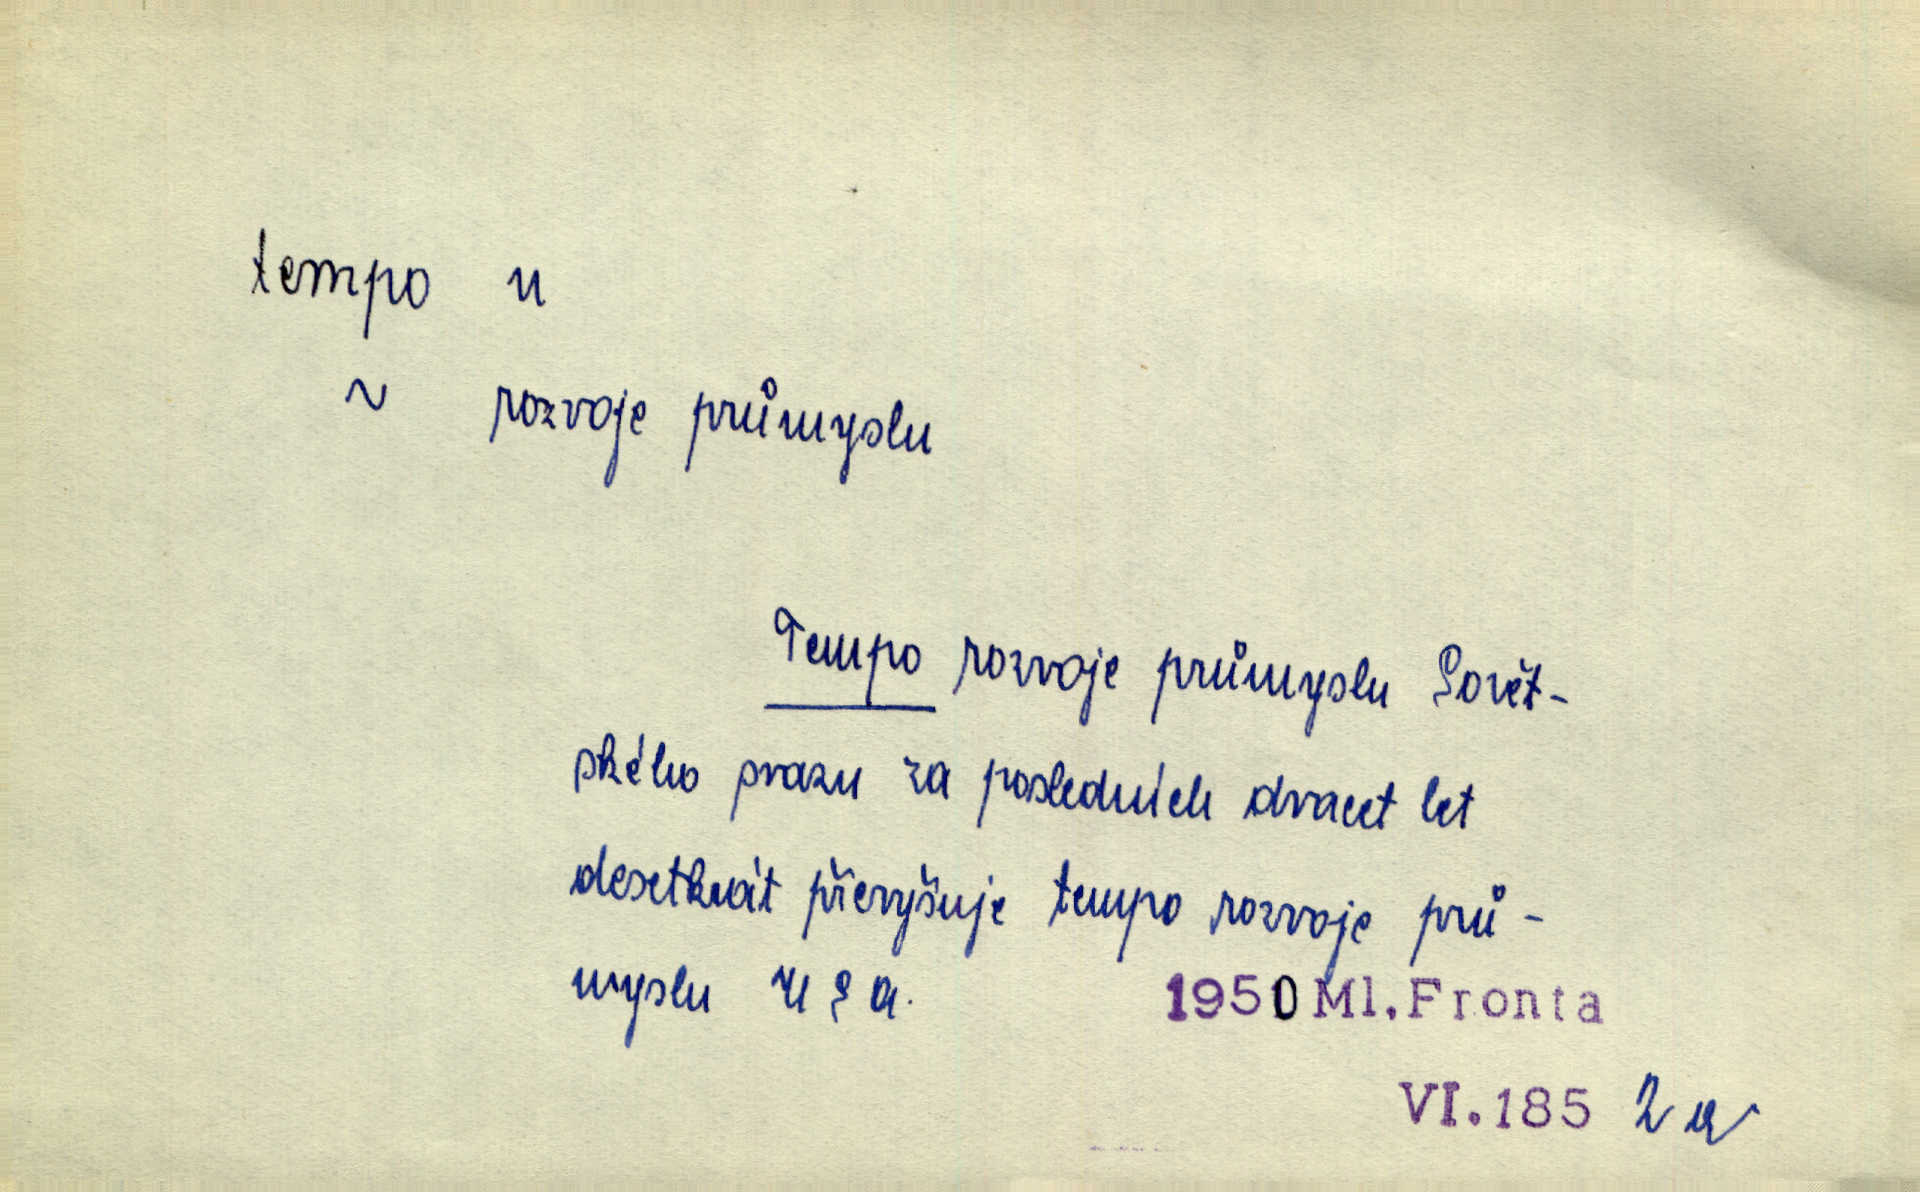 tempo n
~ rozvoje průmyslu
Tempo rozvoje průmyslu Sovět-
ského svazu za posledních dvacet let
desetkrát převyšuje tempo rozvoje prů-
myslu USA.
1950 Ml.Fronta
VI.185 2a